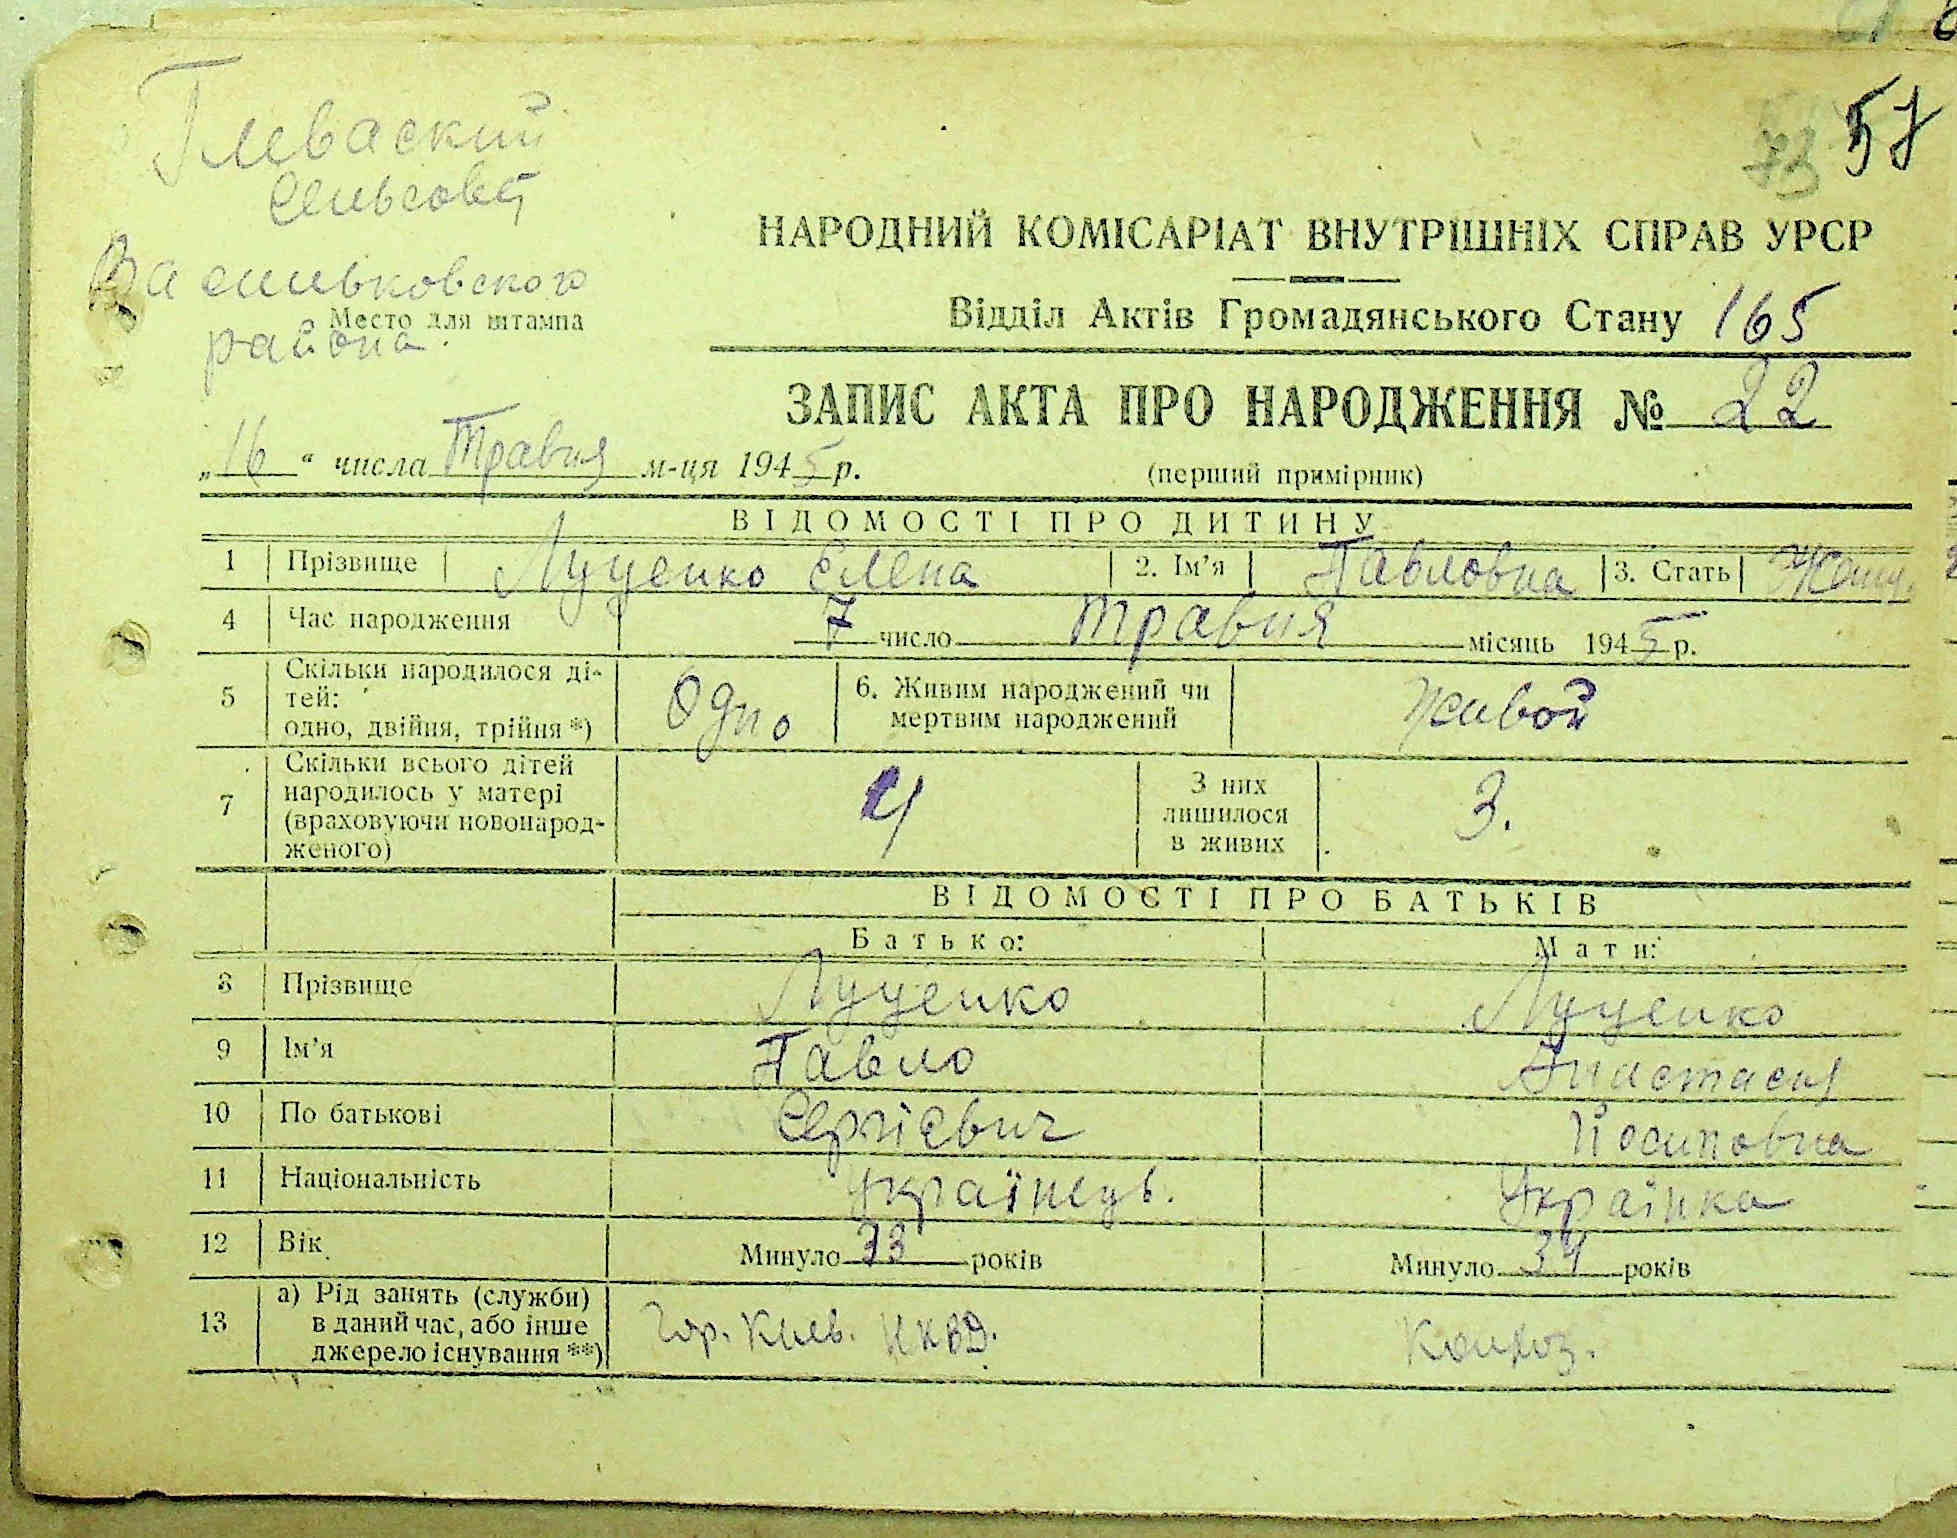 57
73
Глеваский
сельсовет
Васильковского
района
Место для штампа
НАРОДНИЙ КОМІСАРІАТ ВНУТРІШНІХ СПРАВ УРСР
Відділ Актів Громадянського Стану 165
ЗАПИС АКТА ПРО НАРОДЖЕННЯ № 22
„16“ числа Травня м-ця 1945 р.
(перший примірник)
ВІДОМОСТІ ПРО ДИТИНУ
1 Прізвище Луценко Єлена 2. Ім'я Павловна 3. Стать Женщ.
4 Час народження 7 число травня місяць 1945 р.
5 Скільки народилося ді-
тей:
одно, двійня, трійня *) Одно
6. Живим народжений чи
мертвим народжений Живой
7 Скільки всього дітей
народилось у матері
(враховуючи новонарод-
женого) 4
З них
лишилося
в живих 3.
ВІДОМОСТІ ПРО БАТЬКІВ
Батько: Мати:
8 Прізвище Луценко Луценко
9 Ім'я Павло Анастасия
10 По батькові Сергієвич Йосиповна
11 Національність Українець. Українка
12 Вік Минуло 33 років Минуло 34 років
13 а) Рід занять (служби)
в даний час, або інше
джерело існування **)
Гор. Киев. НКВД. Колхоз.